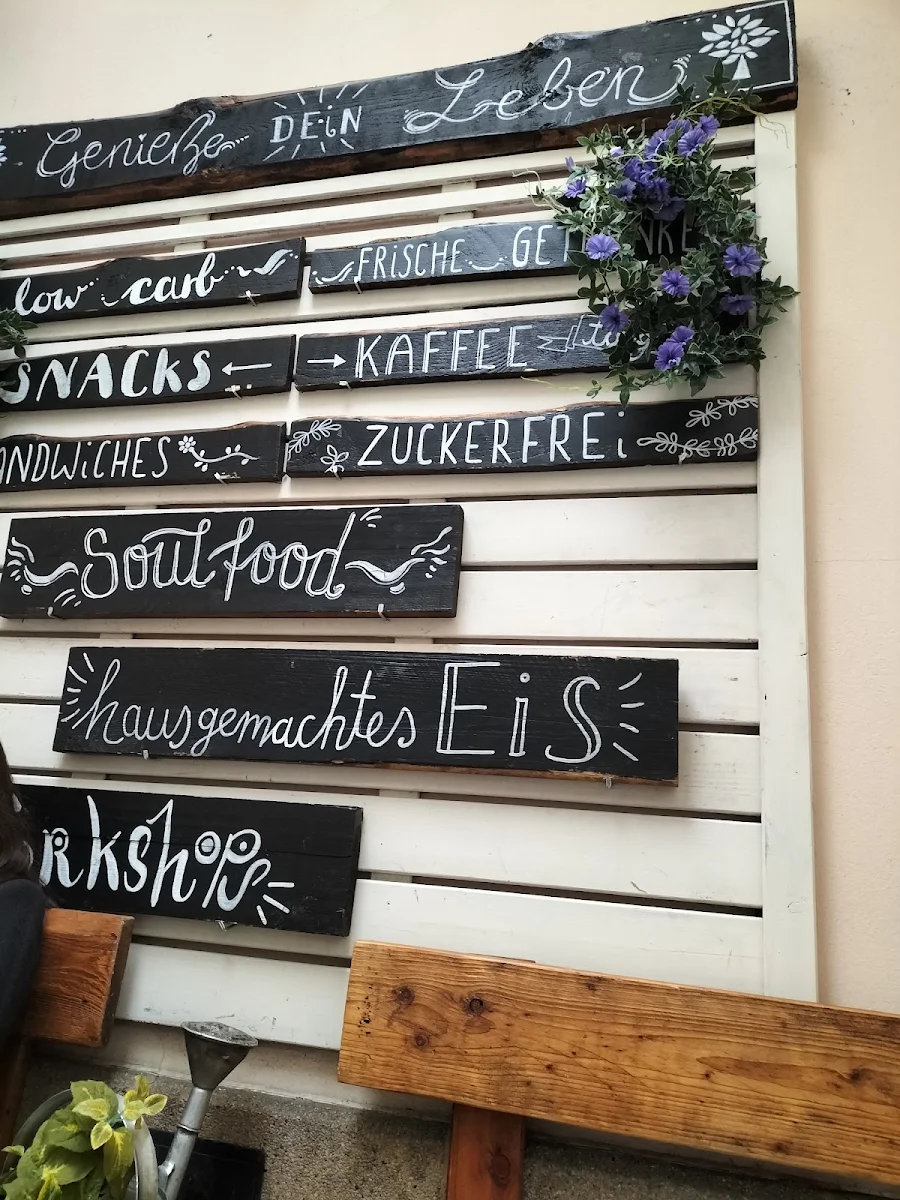 Genieße DEiN Leben
low carb
FRiSCHE GET NKE
SNACKS
KAFFEE
ANDWiCHES
ZUCKERFREi
Soulfood
hausgemachtes EiS
rkshops